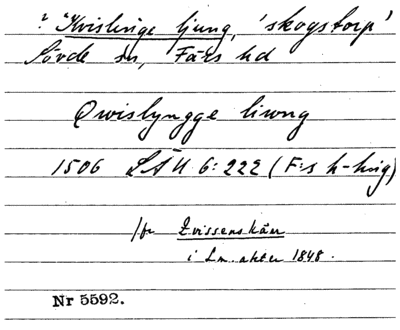 ? "Kvislinge ljung, 'skogstorp'
Sövde sn, Färs hd
Qwislyngge liwng
1506 LÄU 6:222 (F:s h-hvig)
Jfr Zvissenskärr
i Lm. akter 1848.
Nr 5592.